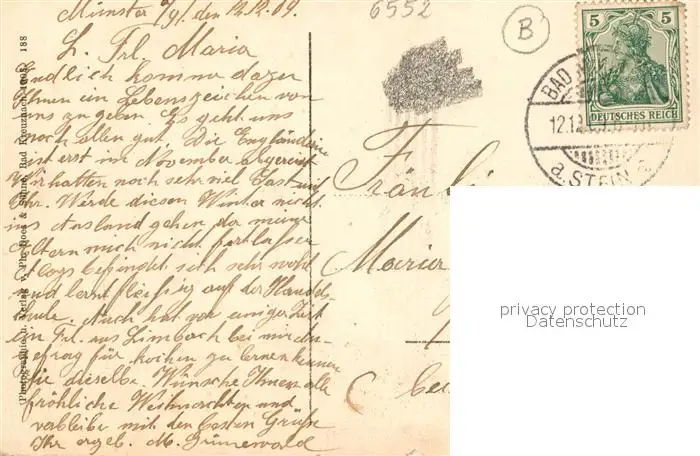 Münster a/St. den 12.12.09.
L. Frl. Maria
Endlich komme dazu
Ihnen ein Lebenszeichen von
uns zu geben. Es geht uns
noch allen gut. Die Engländerin
ist erst im November abgereist
Wir hatten noch sehr viel
Werde diesen Winter nicht
ins Ausland gehen da meine
Eltern mich nicht fortlassen
befindet sich sehr wohl
und lernt fleißig auf der Handels
schule. Auch hat vor einiger Zeit
ein Frl. aus Limbach bei mir an-
gefragt für kochen zu lernen kennen
Sie dieselbe. Wünsche Ihnen alle
fröhliche Weihnachten und
verbleibe mit den besten Grüße
Ihr ergeb. M. Grünewald
Photographie u. Verlag v. Ph. Roes & Sohn, Bad Kreuznach 1908. 188
6552
B
5 5
DEUTSCHES REICH
BAD
12.12.
a. STEIN
Fräulein
Maria
privacy protection
Datenschutz